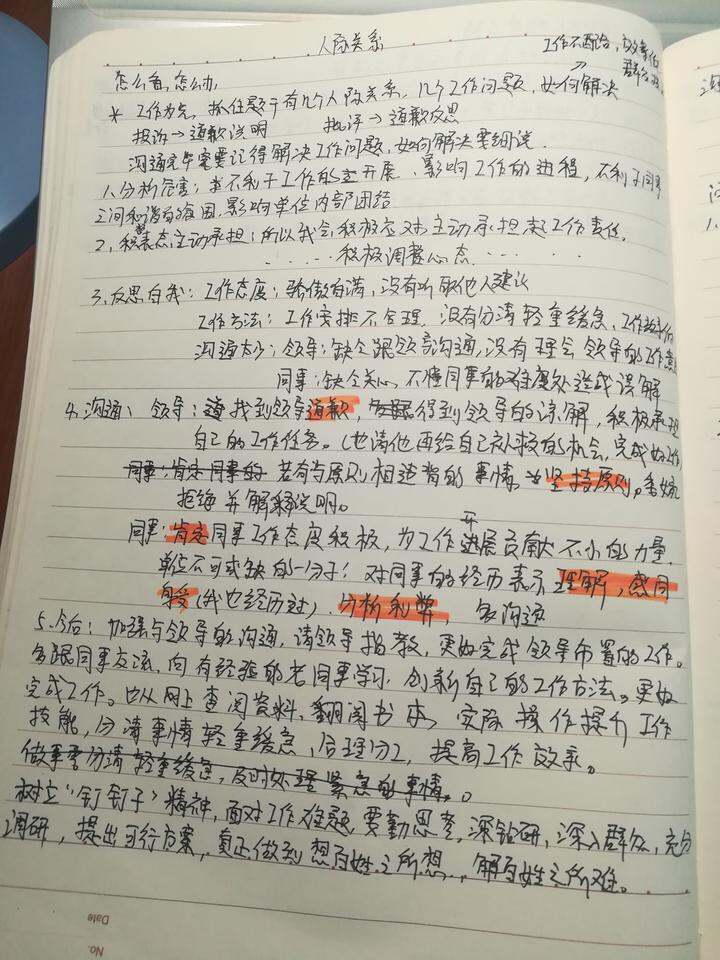 人际关系
工作不配合，效率低
怎么看，怎么办
* 工作为先，抓住题干有几个人际关系，几个工作问题，如何解决
投诉→道歉说明 批评→道歉反思
沟通完毕需要记得解决工作问题，如何解决要细说
1.分析危害：不利于工作的开展、影响工作的进程，不利于同事
之间和谐的氛围，影响单位内部团结
2.积表态主动承担：所以我会积极应对主动承担工作责任，
积极调整心态
3.反思自我：工作态度：骄傲自满，没有听取他人建议
工作方法：工作安排不合理，没有分清轻重缓急，工作效率低
沟通太少：领导：缺乏跟领导沟通，没有理会领导的工作意
同事：缺乏关心，不懂同事的难处造成误解
4.沟通：领导：找到领导道歉，得到领导的谅解，积极承担
自己的工作任务。(也请他再给自己补救的机会，完成好工作
同事：肯定同事的 若有与原则相违背的事情，坚持原则。委婉
拒绝并解释说明。
同事：肯定同事工作态度积极，为工作开展贡献不小的力量，
单位不可或缺的一分子！对同事的经历表示理解，感同
身受(我也经历过)．分析利弊， 多沟通
5.今后：加强与领导的沟通，请领导指教，更好完成领导布置的工作。
多跟同事交流，向有经验的老同事学习，创新自己的工作方法。更好
完成工作。也从网上查阅资料、翻阅书本，实际操作提升工作
技能，分清事情轻重缓急，合理分工，提高工作效率。
做事要分清轻重缓急，及时处理紧急的事情。
树立“钉钉子”精神，面对工作难题，要勤思考，深钻研，深入群众，充分
调研，提出可行方案，真正做到想百姓之所想，解百姓之所难。
Date
No.